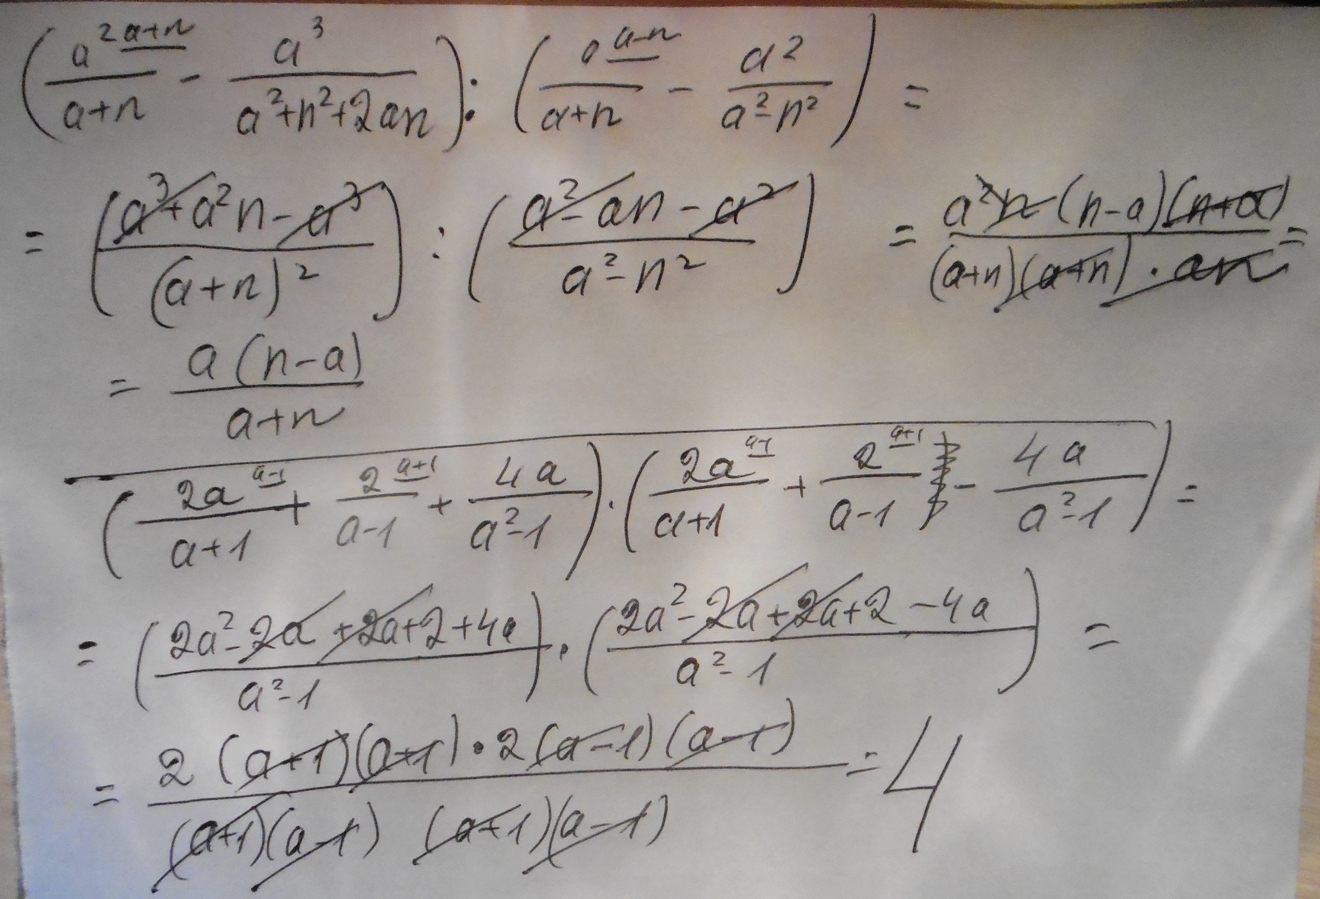 (a² a+n / a+n - a³ / a²+n²+2an) : (a a-n / a+n - a² / a²-n²) =
= (a³+a²n-a³ / (a+n)²) : (a²-an-a² / a²-n²) = a²n(n-a)(n+a) / (a+n)(a+n)·an =
= a(n-a) / a+n
(2a a-1 / a+1 + 2 a+1 / a-1 + 4a / a²-1) · (2a a-1 / a+1 + 2 a+1 / a-1 - 4a / a²-1) =
= (2a²-2a+2a+2+4a / a²-1) · (2a²-2a+2a+2-4a / a²-1) =
= 2(a+1)(a+1)·2(a-1)(a-1) / (a+1)(a-1) (a+1)(a-1) = 4